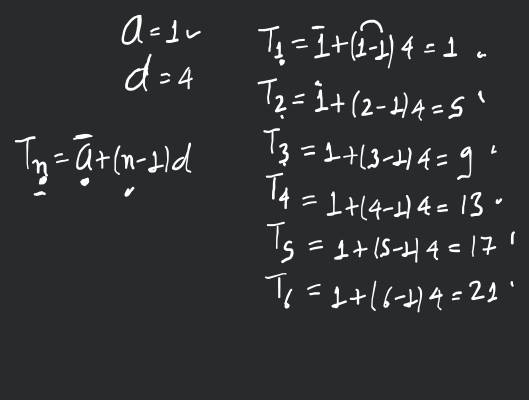 a=1
d=4
Tn=a+(n-1)d
T1=1+(1-1)4=1
T2=1+(2-1)4=5
T3=1+(3-1)4=9
T4=1+(4-1)4=13
T5=1+(5-1)4=17
T6=1+(6-1)4=21